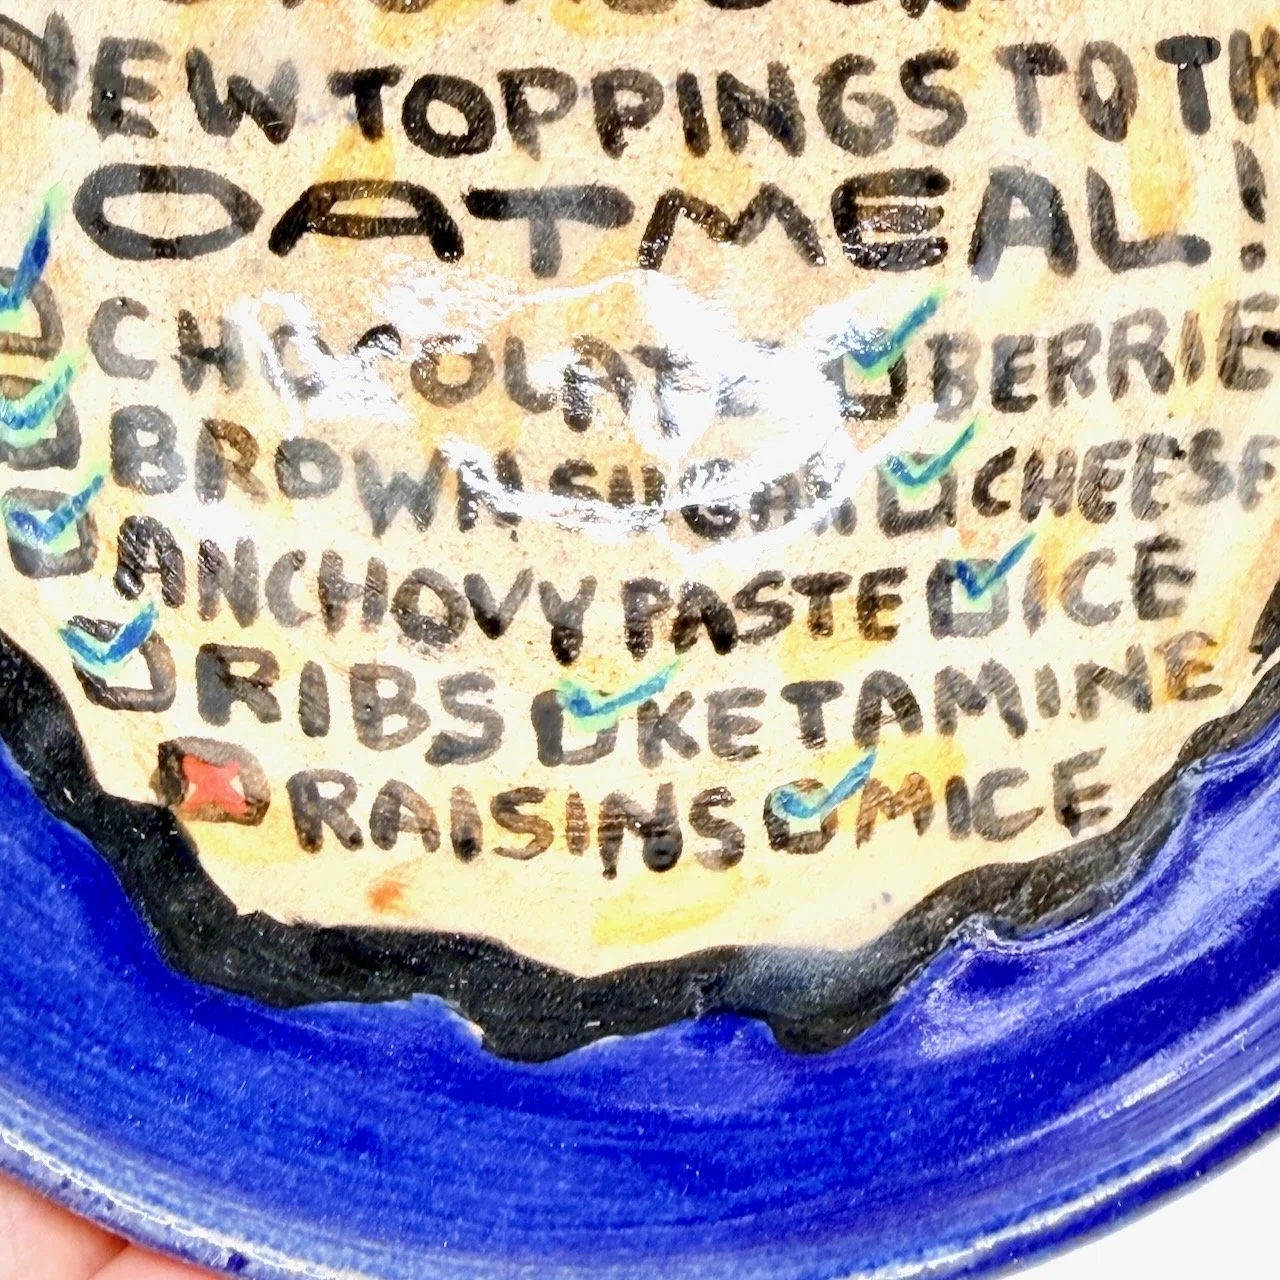 NEW TOPPINGS TO TH
OATMEAL!
CHOCOLATE BERRIE
BROWN SUGAR CHEESE
ANCHOVY PASTE ICE
RIBS KETAMINE
RAISINS MICE